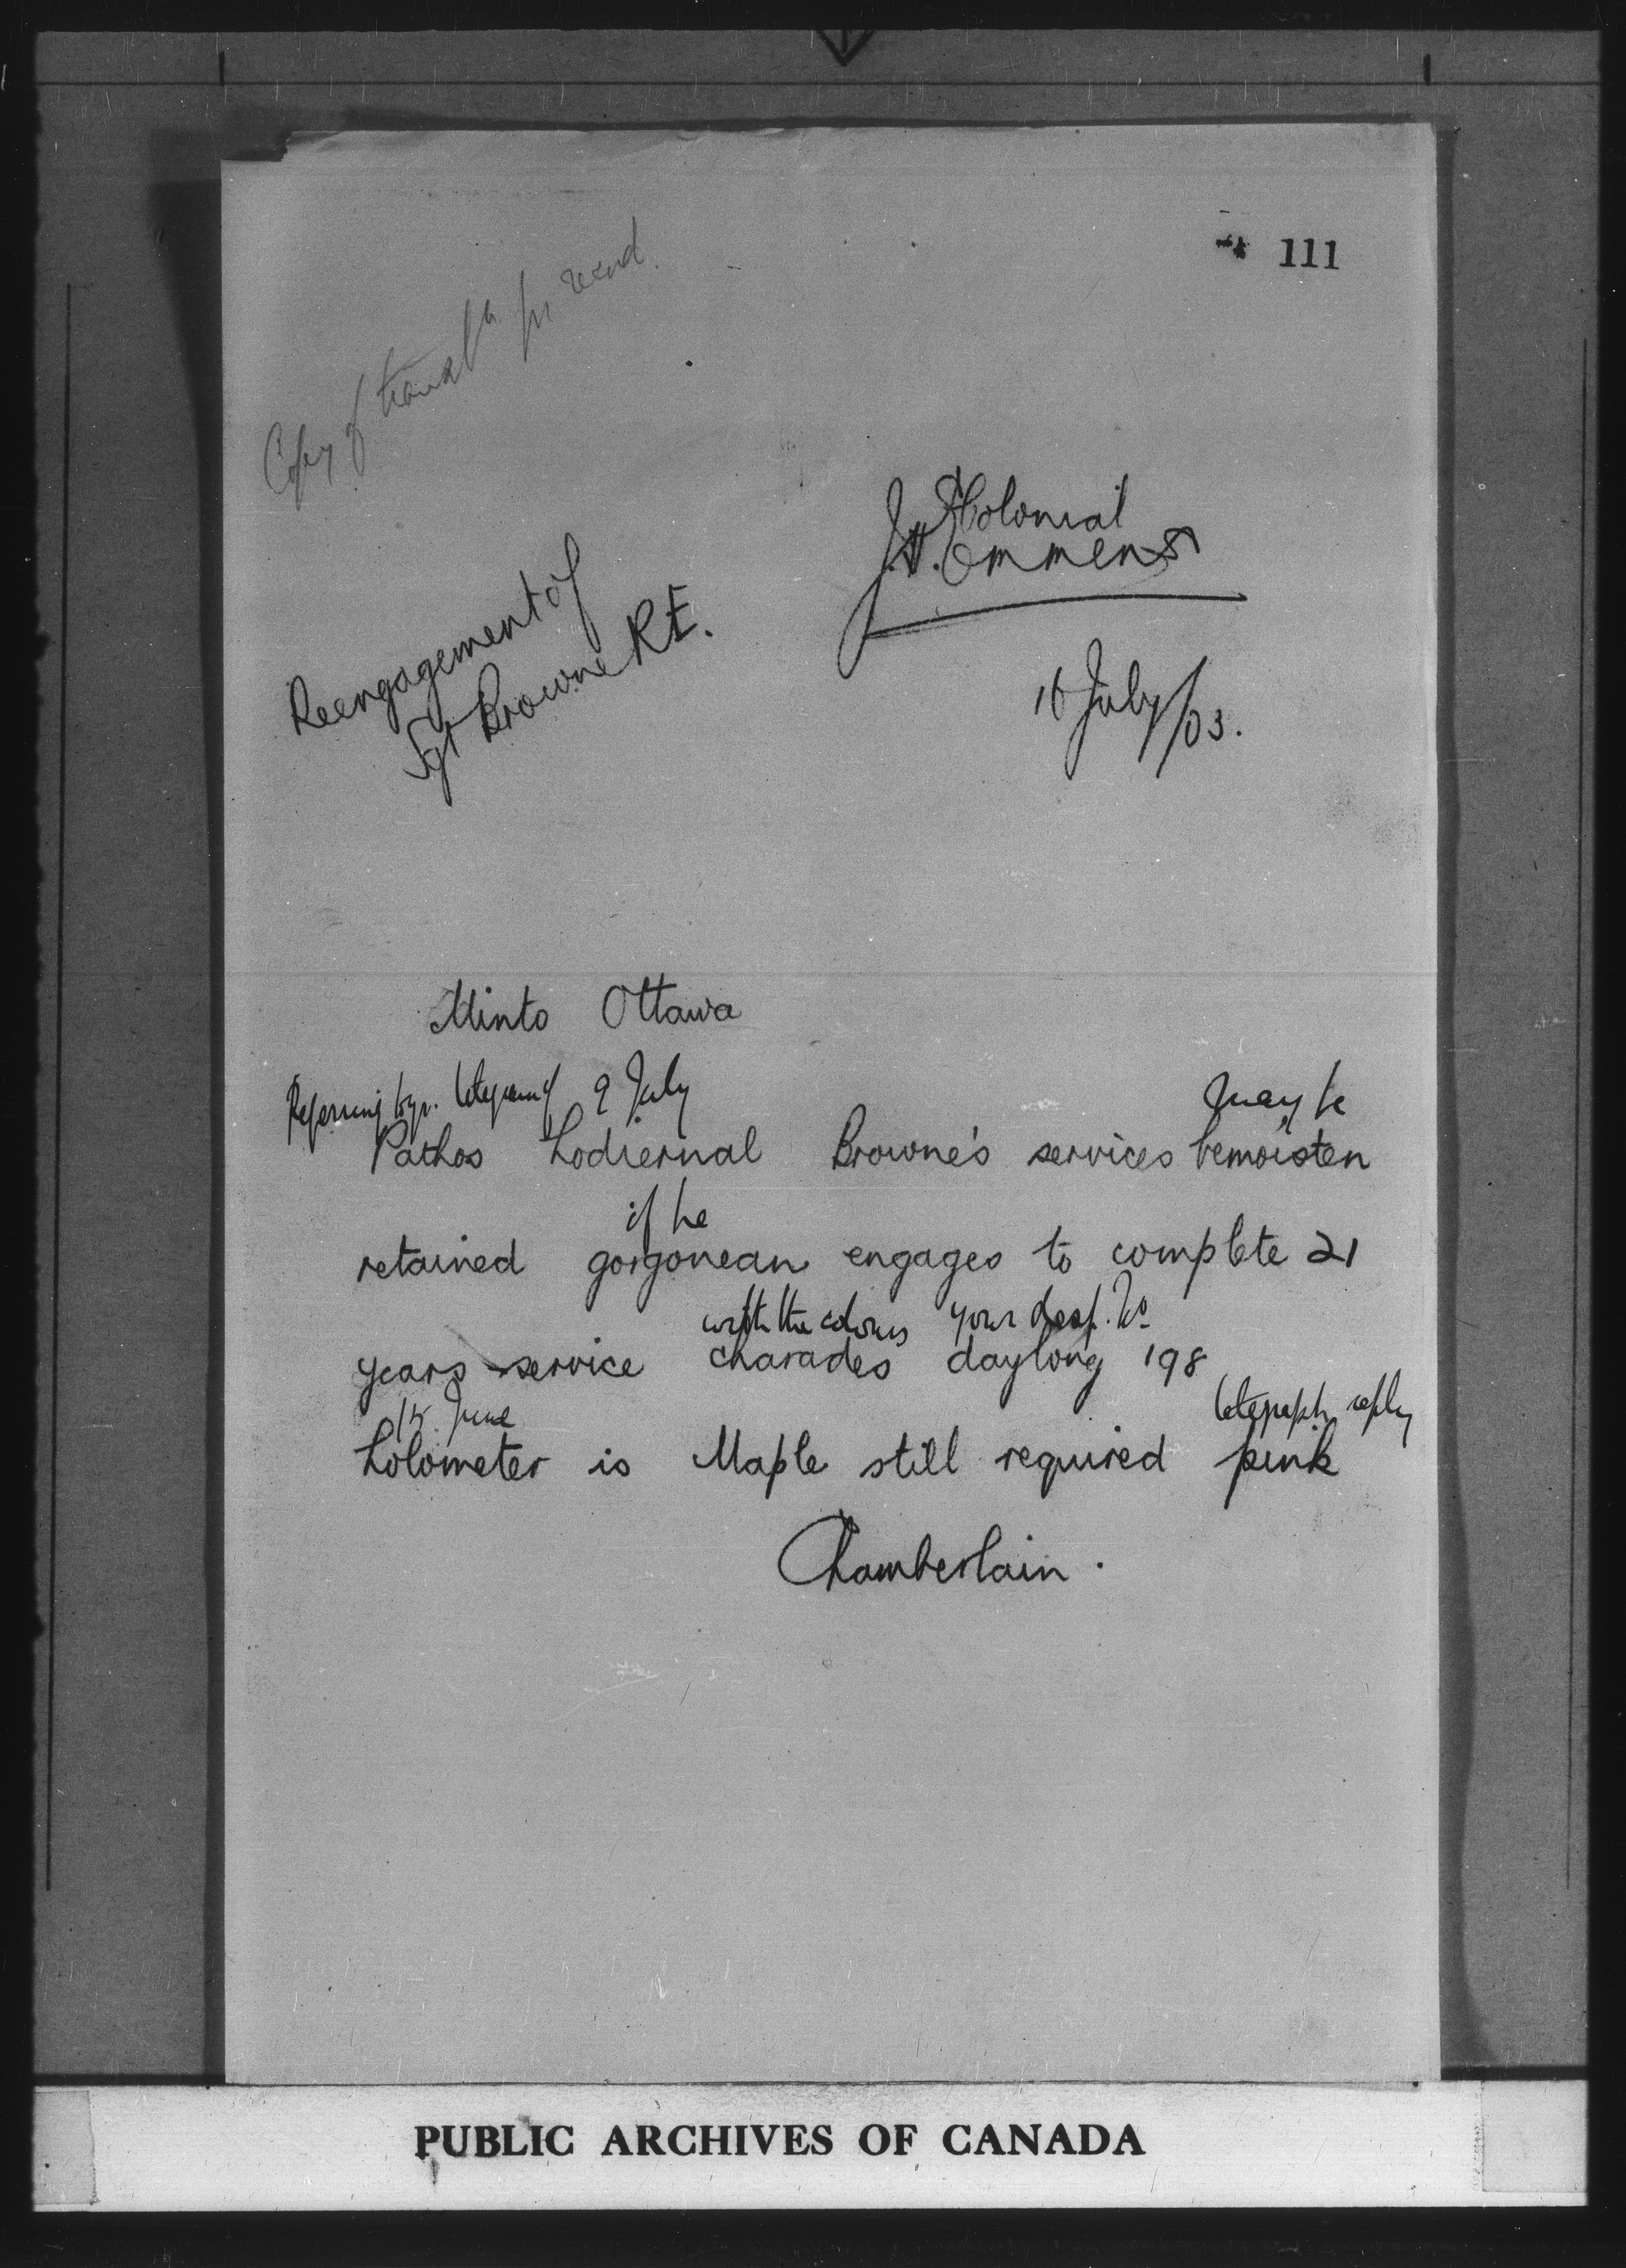 111
Copy of transl<sup>n</sup> for record.
Colonial
Commen
Reengagement of
Sgt Browne R.E.
16 July/03.
Minto Ottawa
Referring to yr. telegram of 9 July may be
Pathos hodiernal Browne's services bemoisten
if he
retained gorgonean engages to complete 21
with the colours your desp. No
years service charades daylong 198
15 June telegraph reply
holometer is Maple still required pink
Chamberlain.
PUBLIC ARCHIVES OF CANADA